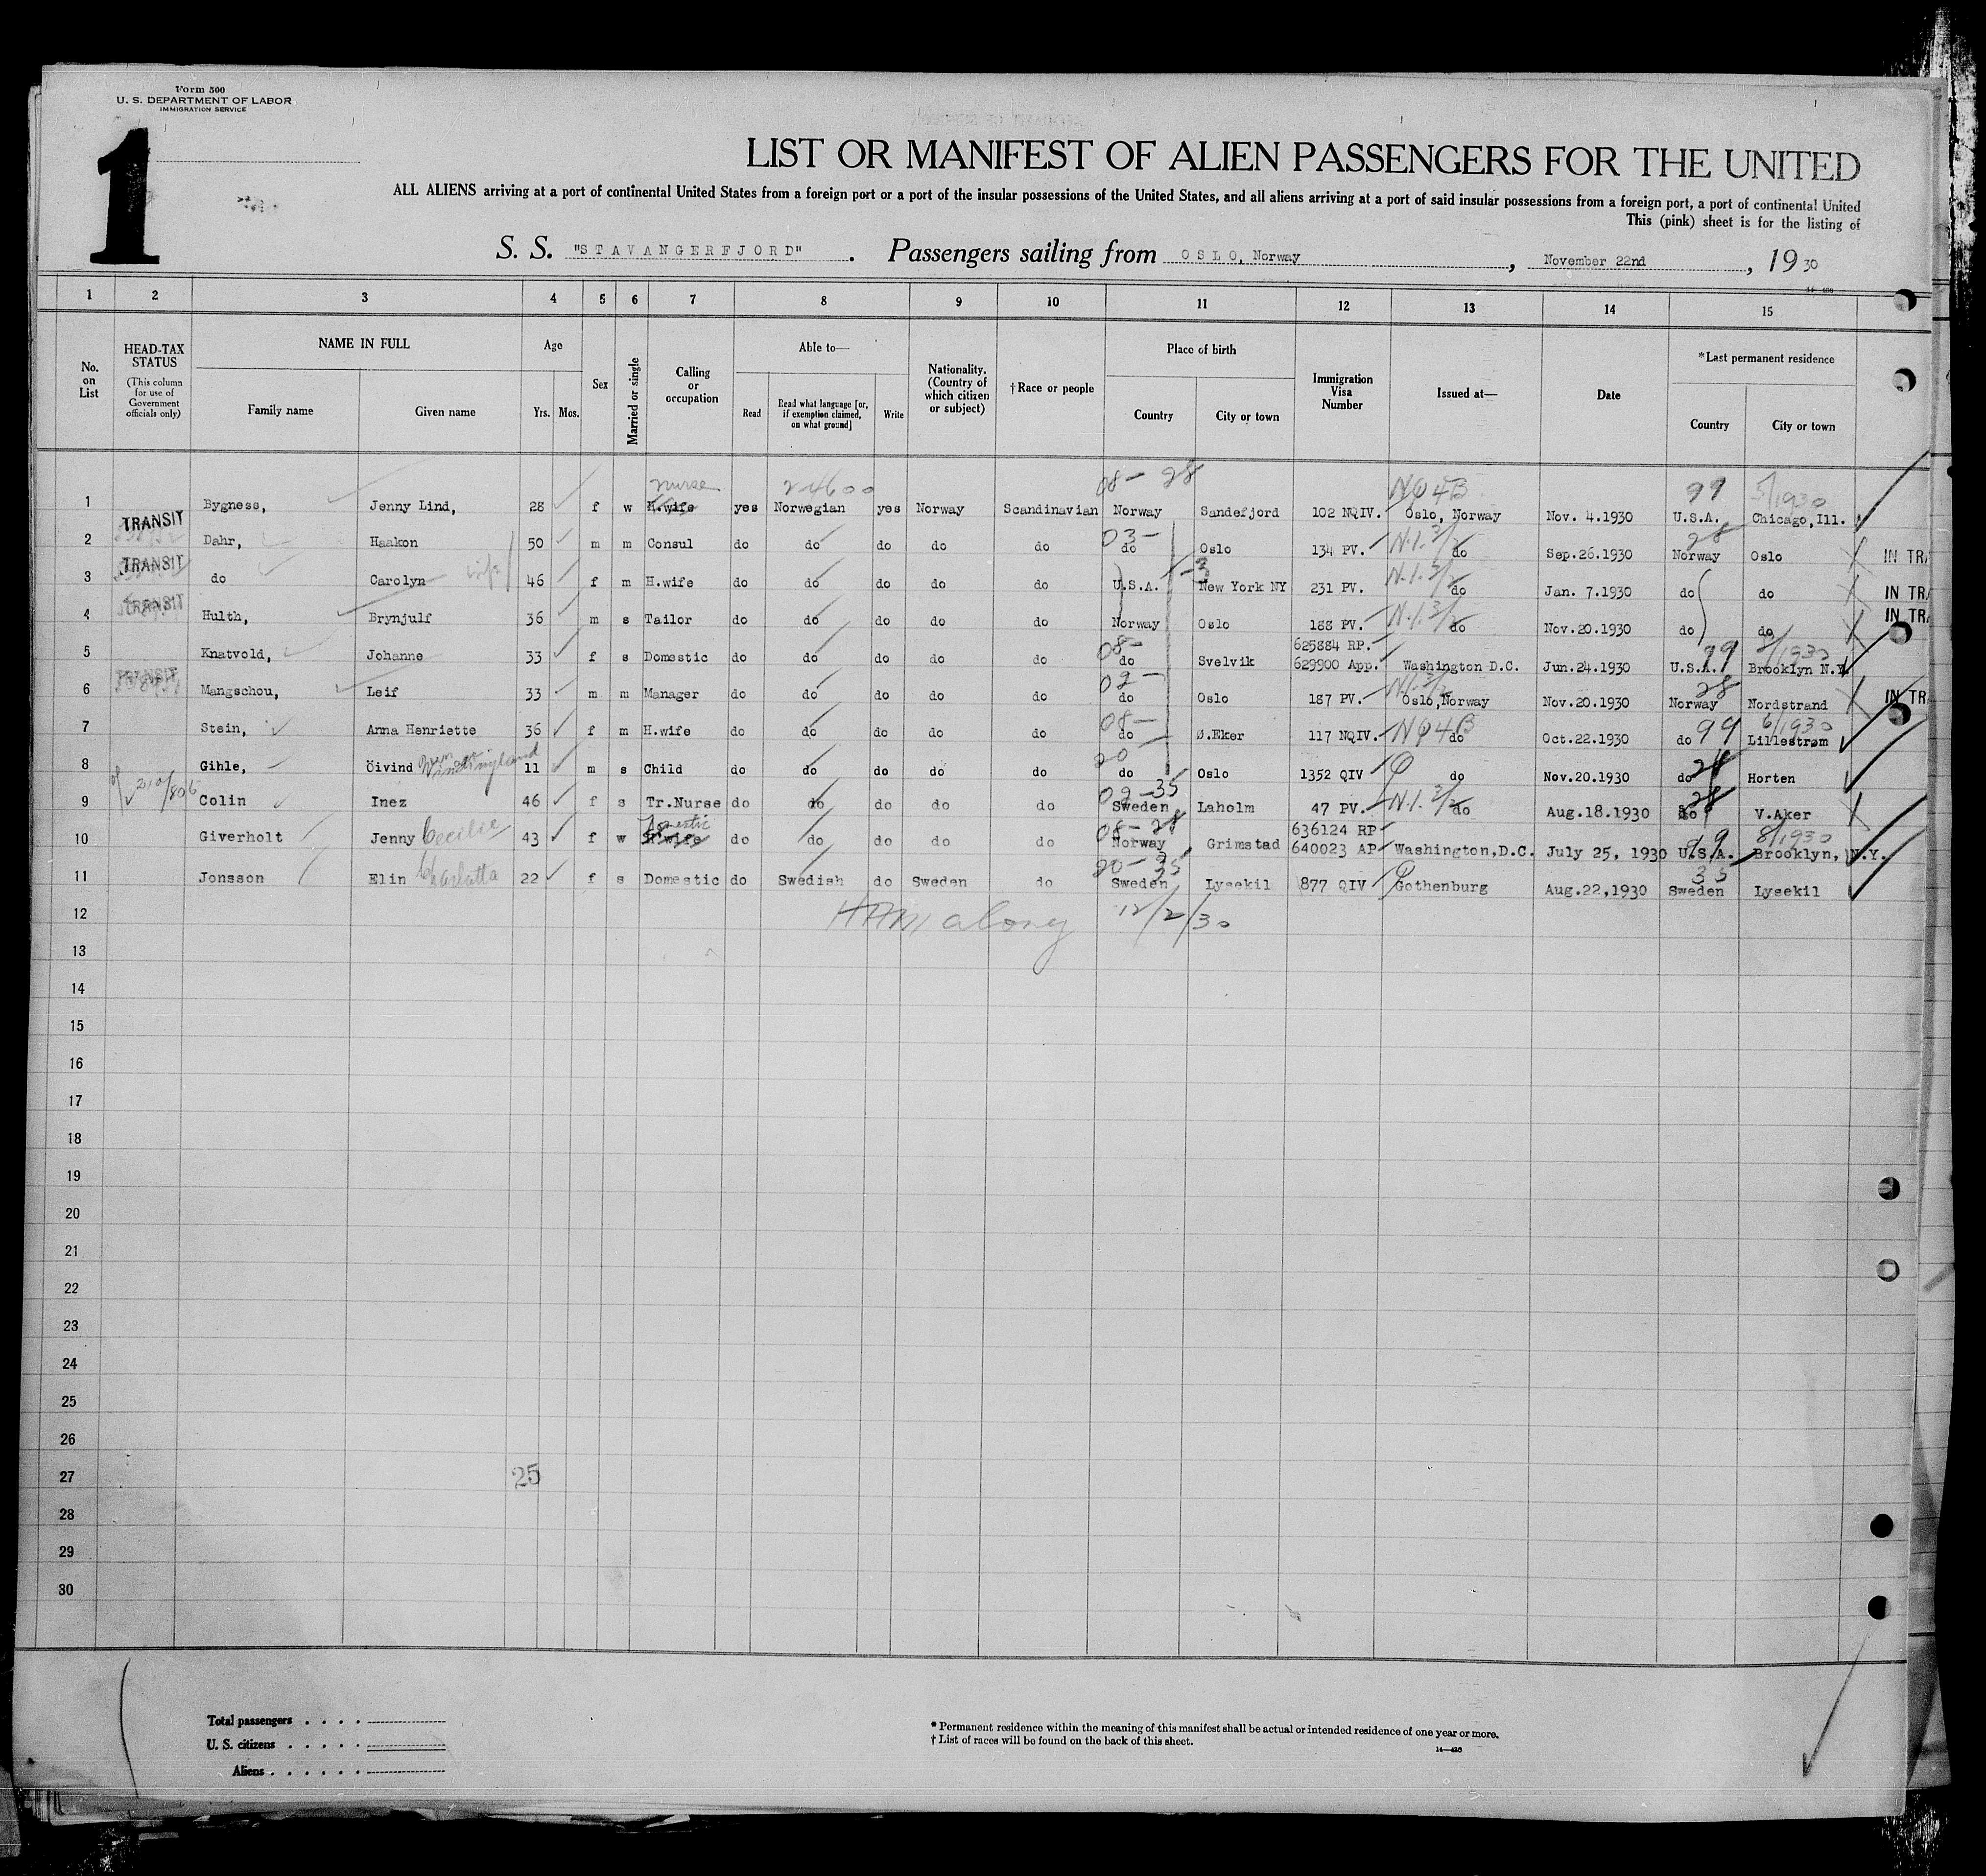 Form 500
U. S. DEPARTMENT OF LABOR
IMMIGRATION SERVICE
1
LIST OR MANIFEST OF ALIEN PASSENGERS FOR THE UNITED
ALL ALIENS arriving at a port of continental United States from a foreign port or a port of the insular possessions of the United States, and all aliens arriving at a port of said insular possessions from a foreign port, a port of continental United
This (pink) sheet is for the listing of
S. S. "STAVANGERFJORD". Passengers sailing from OSLO, Norway, November 22nd, 1930
1 2 3 4 5 6 7 8 9 10 11 12 13 14 15
No. on List
HEAD-TAX STATUS
(This column for use of Government officials only)
NAME IN FULL
Family name Given name
Age
Yrs. Mos.
Sex
Married or single
Calling or occupation
Able to—
Read
Read what language [or, if exemption claimed, on what ground]
Write
Nationality. (Country of which citizen or subject)
†Race or people
Place of birth
Country City or town
Immigration Visa Number
Issued at—
Date
*Last permanent residence
Country City or town
nurse 2-4600 08- 28 NQ4B 99 5/1930
1 Bygness, Jenny Lind, 28 f w H.wife yes Norwegian yes Norway Scandinavian Norway Sandefjord 102 NQIV. Oslo, Norway Nov. 4.1930 U.S.A. Chicago,Ill.
TRANSIT 03- N.I.3/2 28
2 Dahr, Haakon 50 m m Consul do do do do do do Oslo 134 PV. do Sep.26.1930 Norway Oslo IN TRA
TRANSIT wife -3 N.I.3/2
3 do Carolyn 46 f m H.wife do do do do do U.S.A. New York NY 231 PV. do Jan. 7.1930 do do IN TRA
TRANSIT N.I.3/2
4 Hulth, Brynjulf 36 m s Tailor do do do do do Norway Oslo 188 PV. do Nov.20.1930 do do IN TRA
08- 625884 RP. 99 /1930
5 Knatvold, Johanne 33 f s Domestic do do do do do do Svelvik 629900 App. Washington D.C. Jun.24.1930 U.S.A. Brooklyn N.Y.
TRANSIT 02- N.I.3/2 28
6 Mangschou, Leif 33 m m Manager do do do do do do Oslo 187 PV. Oslo,Norway Nov.20.1930 Norway Nordstrand IN TR
08- NQ4B 99 6/1930
7 Stein, Anna Henriette 36 f m H.wife do do do do do do Ø.Eker 117 NQIV. do Oct.22.1930 do Lillestrøm
20 Q 28
8 Gihle, Öivind 11 m s Child do do do do do do Oslo 1352 QIV do Nov.20.1930 do Horten
02-35 N.I.3/2 28
9 Colin Inez 46 f s Tr.Nurse do do do do do Sweden Laholm 47 PV. do Aug.18.1930 do V.Aker
Domestic 08-28 636124 RP 99 8/1930
10 Giverholt Jenny Cecilie 43 f w H.wife do do do do do Norway Grimstad 640023 AP Washington,D.C. July 25, 1930 U.S.A. Brooklyn, N.Y.
20-35 Q 35
11 Jonsson Elin Charlotta 22 f s Domestic do Swedish do Sweden do Sweden Lysekil 877 QIV Gothenburg Aug.22,1930 Sweden Lysekil
12 12/2/30
13
14
15
16
17
18
19
20
21
22
23
24
25
26
27 25
28
29
30
Total passengers
U. S. citizens
Aliens
* Permanent residence within the meaning of this manifest shall be actual or intended residence of one year or more.
† List of races will be found on the back of this sheet.